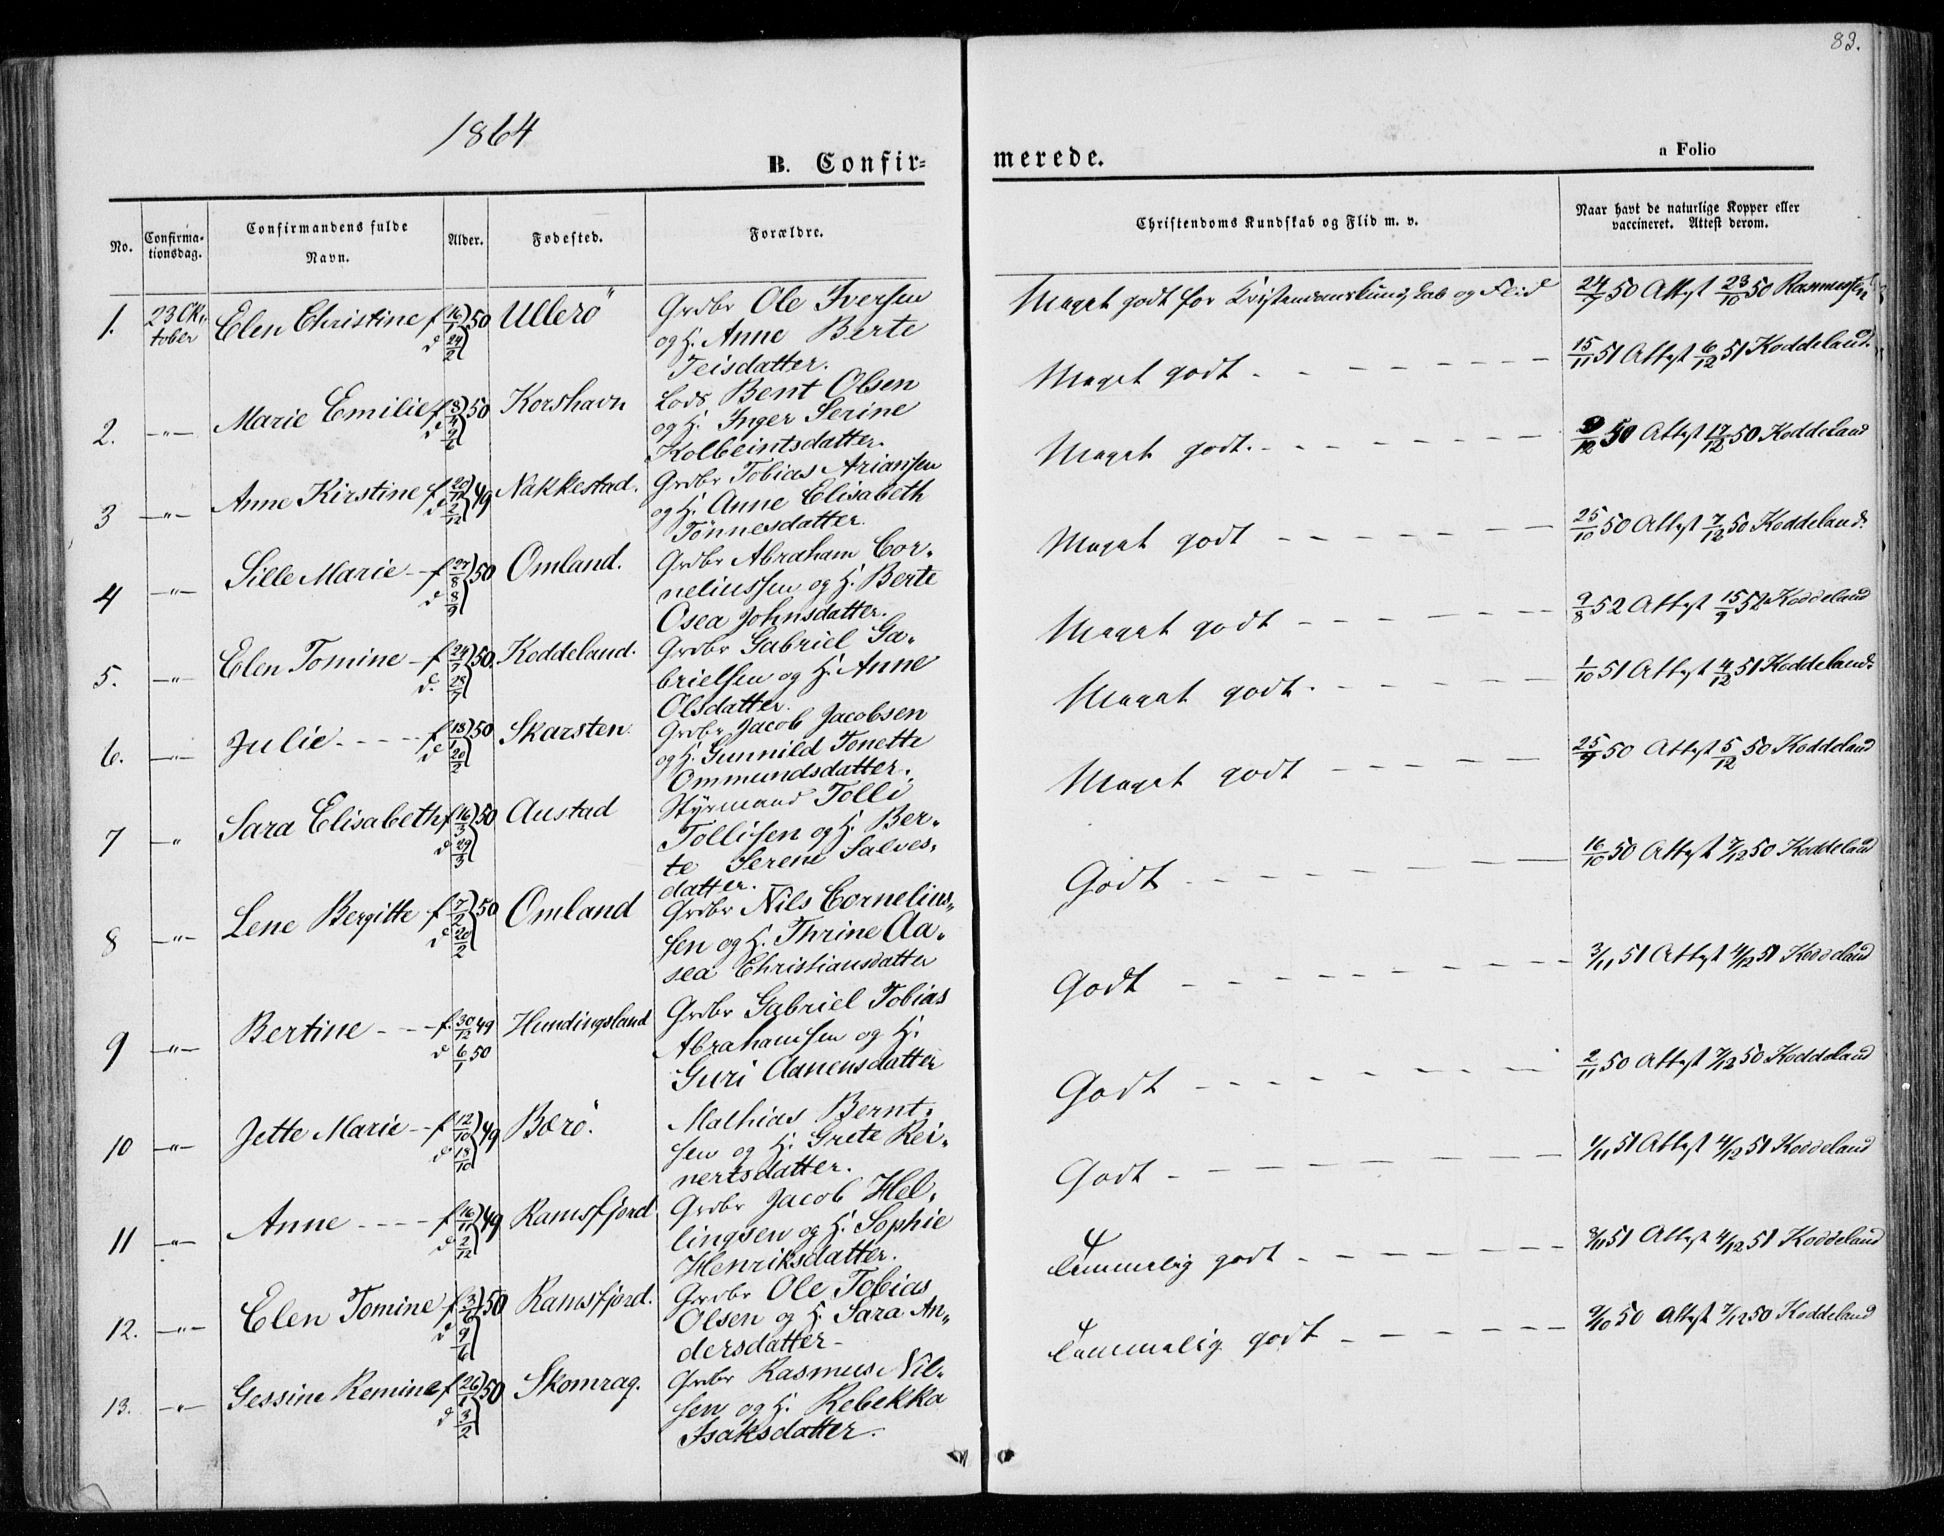 83.
1864
B. Confir=
merede.
a Folio
No.
Confirma-
tionsdag.
Confirmandens fulde
Navn.
Alder.
Fødested.
Forældre.
Christendoms Kundskab og Flid m. v.
Naar havt de naturlige Kopper eller
vaccineret. Attest derom.
1. 23 Ok-
tober
Elen Christine f 16/1 50
d 24/2
Ullerö
Grdbr Ole Iversen
og H. Anne Berte
Teisdatter.
Meget godt for Kristendomskundskab og Flid
24/7 50 Attest 23/10 50 Rasmussen
2. —"— Marie Emilie f 8/4 50
d 9/6
Korshavn
Lods Bent Olsen
og H. Inger Serine
Kolbeintsdatter.
Meget godt
15/11 51 Attest 6/12 51 Koddeland.
3 —"— Anne Kirstine f 20/11 49
d 2/12
Nakkestad.
Grdbr Tobias Ariansen
og H. Anne Elisabeth
Tönnesdatter.
Meget godt.
9/12 50 Attest 17/12 50 Koddeland
4 —"— Sille Marie f 27/8 50
d 8/9
Omland.
Grdbr Abraham Cor-
neliussen og H. Berte
Osea Johnsdatter.
Meget godt
25/10 50 Attest 7/12 50 Koddeland.
5. —"— Elen Tomine f 24/7 50
d. 28/7
Koddeland.
Grdbr Gabriel Ga-
brielsen og H. Anne
Olsdatter.
Meget godt
9/8 52 Attest 15/9 52 Koddeland
6. —"— Julie f 18/1 50
d 20/2
Skarsten.
Grdbr Jacob Jacobsen
og H. Gunnild Tonette
Ommundsdatter.
Meget godt.
1/10 51 Attest 4/12 51 Koddeland.
7 " Sara Elisabeth f 16/3 50
d 29/3
Austad
Styrmand Tolli
Tollisen og H. Ber-
te Serene Salves-
datter.
Meget godt
25/9 50 Attest 5/12 50 Koddeland
8 —"— Lene Bergitte f 7/2 50
d 20/2
Omland
Grdbr Nils Cornelius-
sen og H. Thrine Aa-
sea Christiansdatter
Godt
16/10 50 Attest 7/12 50 Koddeland
9 —"— Bertine f. 30/12 49
d 6/1 50
Hundingsland
Grdbr Gabriel Tobias
Abrahamsen og H.
Guri Aanensdatter
Godt
3/11 51 Attest 4/12 51 Koddeland
10 —"— Jette Marie f 12/10 49
d 18/10
Bærö.
Mathias Bernt-
sen og H. Grete Rei-
nertsdatter.
Godt
2/11 50 Attest 7/12 50 Koddeland
11 —"— Anne f 16/11 49
d 2/12
Ramsfjord
Grdbr Jacob Hel-
lingsen og H. Sophie
Henriksdatter.
Godt
1/11 51 Attest 4/12 51 Koddeland
12. —"— Elen Tomine f 3/6 50
d 9/6
Ramsfjord.
Grdbr Ole Tobias
Olsen og H. Sara An-
dersdatter
Temmelig godt
3/11 51 Attest 4/12 51 Koddeland
13. —"— Gessine Remine f 26/1 50
d 3/2
Skomrag.
Grdbr Rasmus Nil-
sen og H. Rebekka
Isaksdatter.
Temmelig godt
9/10 50 Attest 7/12 50 Koddeland